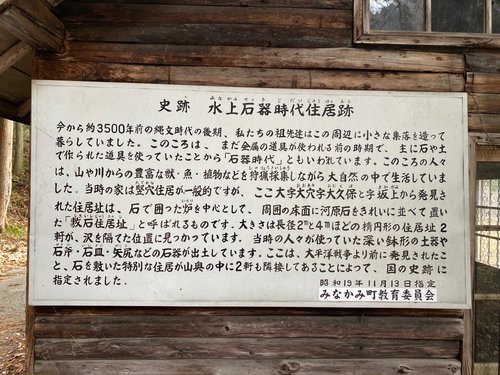 史跡 水上石器時代住居跡
今から約3500年前の縄文時代の後期、私たちの祖先達はこの周辺に小さな集落を造って
暮らしていました。このころは、まだ金属の道具が使われる前の時期で、主に石や土
で作られた道具を使っていたことから「石器時代」ともいわれています。ころのころの人々
は、山や川からの豊富な獣・魚・植物などを狩猟採集しながら大自然の中で生活していま
した。当時の家は竪穴住居が一般的ですが、ここ大字大穴字大久保と字坂上から発見さ
れた住居址は、石で囲った炉を中心として、周囲の床面に河原石をきれいに並べて置い
た「敷石住居址」と呼ばれるものです。大きさは長径2㍍と4㍍ほどの楕円形の住居址2
軒が、沢を隔てた位置に見つかっています。当時の人々が使っていた深い鉢形の土器や
石斧・石皿・矢尻などの石器が出土しています。ここは、太平洋戦争より前に発見されたこ
と、石を敷いた特別な住居が山奥の中に2軒も隣接してあることによって、国の史跡に
指定されました。
昭和19年11月13日指定
みなかみ町教育委員会